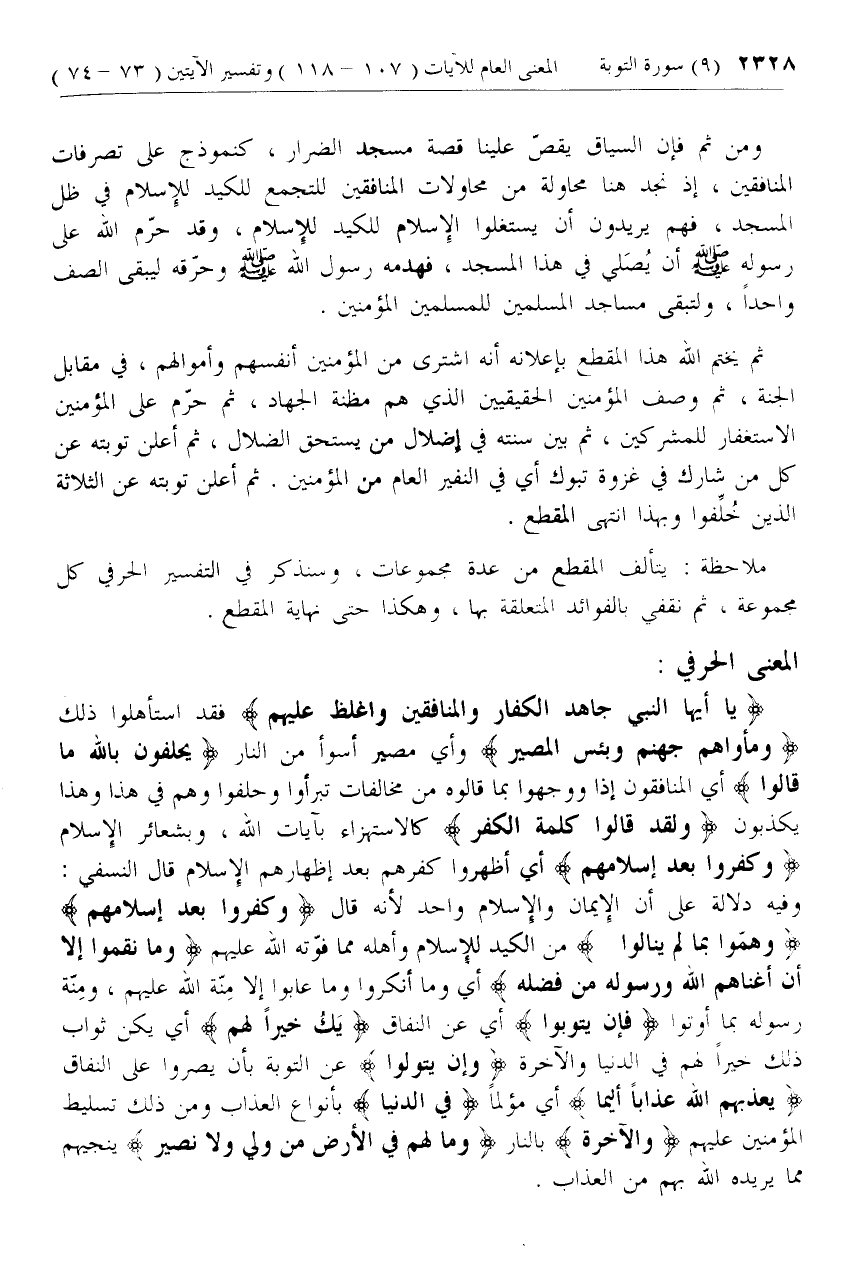 ٢٣٢٨ (٩) سورة التوبة المعنى العام للآيات ( ١٠٧ – ١١٨ ) وتفسير الآيتين ( ٧٣ – ٧٤ )
ومن ثم فإن السياق يقصّ علينا قصة مسجد الضرار ، كنموذج على تصرفات
المنافقين ، إذ نجد هنا محاولة من محاولات المنافقين للتجمع للكيد للإسلام في ظل
المسجد ، فهم يريدون أن يستغلوا الإسلام للكيد للإسلام ، وقد حرّم الله على
رسوله ﷺ أن يُصَلي في هذا المسجد ، فهدمه رسول الله ﷺ وحرّقه ليبقى الصف
واحداً ، ولتبقى مساجد المسلمين للمسلمين المؤمنين .
ثم يختم الله هذا المقطع بإعلانه أنه اشترى من المؤمنين أنفسهم وأموالهم ، في مقابل
الجنة ، ثم وصف المؤمنين الحقيقيين الذي هم مظنة الجهاد ، ثم حرّم على المؤمنين
الاستغفار للمشركين ، ثم بين سنته في إضلال من يستحق الضلال ، ثم أعلن توبته عن
كل من شارك في غزوة تبوك أي في النفير العام من المؤمنين . ثم أعلن توبته عن الثلاثة
الذين خُلِّفوا وبهذا انتهى المقطع .
ملاحظة : يتألف المقطع من عدة مجموعات ، وسنذكر في التفسير الحرفي كل
مجموعة ، ثم نقفي بالفوائد المتعلقة بها ، وهكذا حتى نهاية المقطع .
المعنى الحرفي :
﴿ يا أيها النبي جاهد الكفار والمنافقين واغلظ عليهم ﴾ فقد استأهلوا ذلك
﴿ ومأواهم جهنم وبئس المصير ﴾ وأي مصير أسوأ من النار ﴿ يحلفون بالله ما
قالوا ﴾ أي المنافقون إذا ووجهوا بما قالوه من مخالفات تبرأوا وحلفوا وهم في هذا وهذا
يكذبون ﴿ ولقد قالوا كلمة الكفر ﴾ كالاستهزاء بآيات الله ، وبشعائر الإسلام
﴿ وكفروا بعد إسلامهم ﴾ أي أظهروا كفرهم بعد إظهارهم الإسلام قال النسفي :
وفيه دلالة على أن الإيمان والإسلام واحد لأنه قال ﴿ وكفروا بعد إسلامهم ﴾
﴿ وهمّوا بما لم ينالوا ﴾ من الكيد للإسلام وأهله مما فوّته الله عليهم ﴿ وما نقموا إلا
أن أغناهم الله ورسوله من فضله ﴾ أي وما أنكروا وما عابوا إلا مِنّة الله عليهم ، ومِنّة
رسوله بما أوتوا ﴿ فإن يتوبوا ﴾ أي عن النفاق ﴿ يَكُ خيراً لهم ﴾ أي يكن ثواب
ذلك خيراً لهم في الدنيا والآخرة ﴿ وإن يتولوا ﴾ عن التوبة بأن يصروا على النفاق
﴿ يعذبهم الله عذاباً أليما ﴾ أي مؤلماً ﴿ في الدنيا ﴾ بأنواع العذاب ومن ذلك تسليط
المؤمنين عليهم ﴿ والآخرة ﴾ بالنار ﴿ وما لهم في الأرض من ولي ولا نصير ﴾ ينجيهم
مما يريده الله بهم من العذاب .